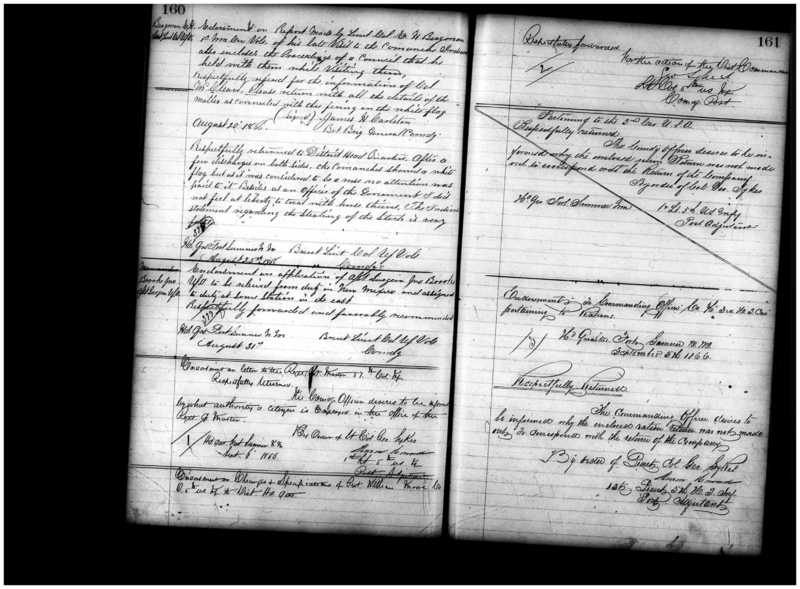 160
Bergman E. H.
Endorsement on Report Made by Lieut Col E. H. Bergman
N. Mex Vols of his late Visit to the Comanche Indians
also encloses the Proceedings of a Council that he
held with them while Visiting them,
respectfully referred for the information of Col
McCleave, Please return with all the details of the
matter as connected with the firing on the white flag
(signed) James H. Carleton
August 20th 1866. Bvt Brig General Comdg
Respectfully returned to District Head Quarters. After a
few discharges on both sides, the Comanches showed a white
flag but as it was considered to be a ruse no attention was
paid to it. Besides as an Officer of the Government I did
not feel at liberty to treat with horse thieves, The Indian
statement regarding the Stealing of the Stock is very
Hd Qrs Fort Sumner N. M. Brevet Lieut Col US Vols
August 25th 1866 Comdg
Brooks Jno
Asst Surgeon USA
Endorsement on application of Asst Surgeon Jno Brooks
USA to be relieved from duty in New Mexico and assigned
to duty at some station in the east
Respectfully forwarded and favorably recommended
Hd Qrs Fort Sumner N. M. Brevet Lieut Col US Vols
August 31st Comdg
Endorsement on letter to the
Respectfully returned.
The Comdg Officer desires to be informed
by what authority a citizen is employed in the office of the
1 Hd Qrs Fort Sumner N. M. By Order of Lt Col Geo. Sykes
Sept 6th 1866
5th US Inf
Post Adjutant
Endorsement on Charges & Specifications of Pvt William
5th US Inf to Dist Hd Qrs
161
Respectfully forwarded
2 for the action of the Dist Commander
Geo Sykes
Lt Col 5th US Inf
Comdg Post
Pertaining to the 3rd Cav U.S.A.
Respectfully returned.
The Comdg Officer desires to be in-
formed why the enclosed return was not made
out to correspond with the Return of the Company
By order of Lt Col Geo. Sykes
Hd Qrs Fort Sumner N. M. 1st Lt 5th US Infty
Post Adjutant
Endorsement to Commanding Officer, Co. H. 3rd U.S. Cav
pertaining to Rations.
3 Hd Quarters Fort Sumner N. M.
September 5th 1866.
Respectfully Returned
The Commanding Officer desires to
be informed why the enclosed ration return was not made
out to correspond with the return of the Company
By order of Brevt Col Geo. Sykes
1st Lieut 5th U.S. Inf
Post Adjutant